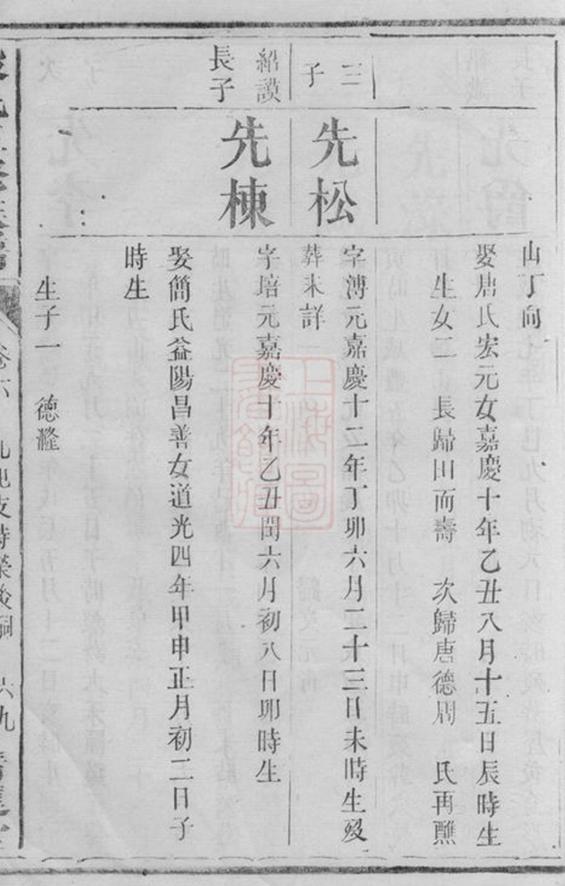 山丁向
娶唐氏宏元女嘉慶十年乙丑八月十五日辰時生
生女二 長歸田而壽 次歸唐德周 氏再醮
三子
先松
字溥元嘉慶十二年丁卯六月二十三日未時生歿
葬未詳
紹謨長子
先棟
字培元嘉慶十年乙丑閏六月初八日卯時生
娶簡氏益陽昌善女道光四年甲申正月初二日子
時生
生子一 德漋
卷六 九